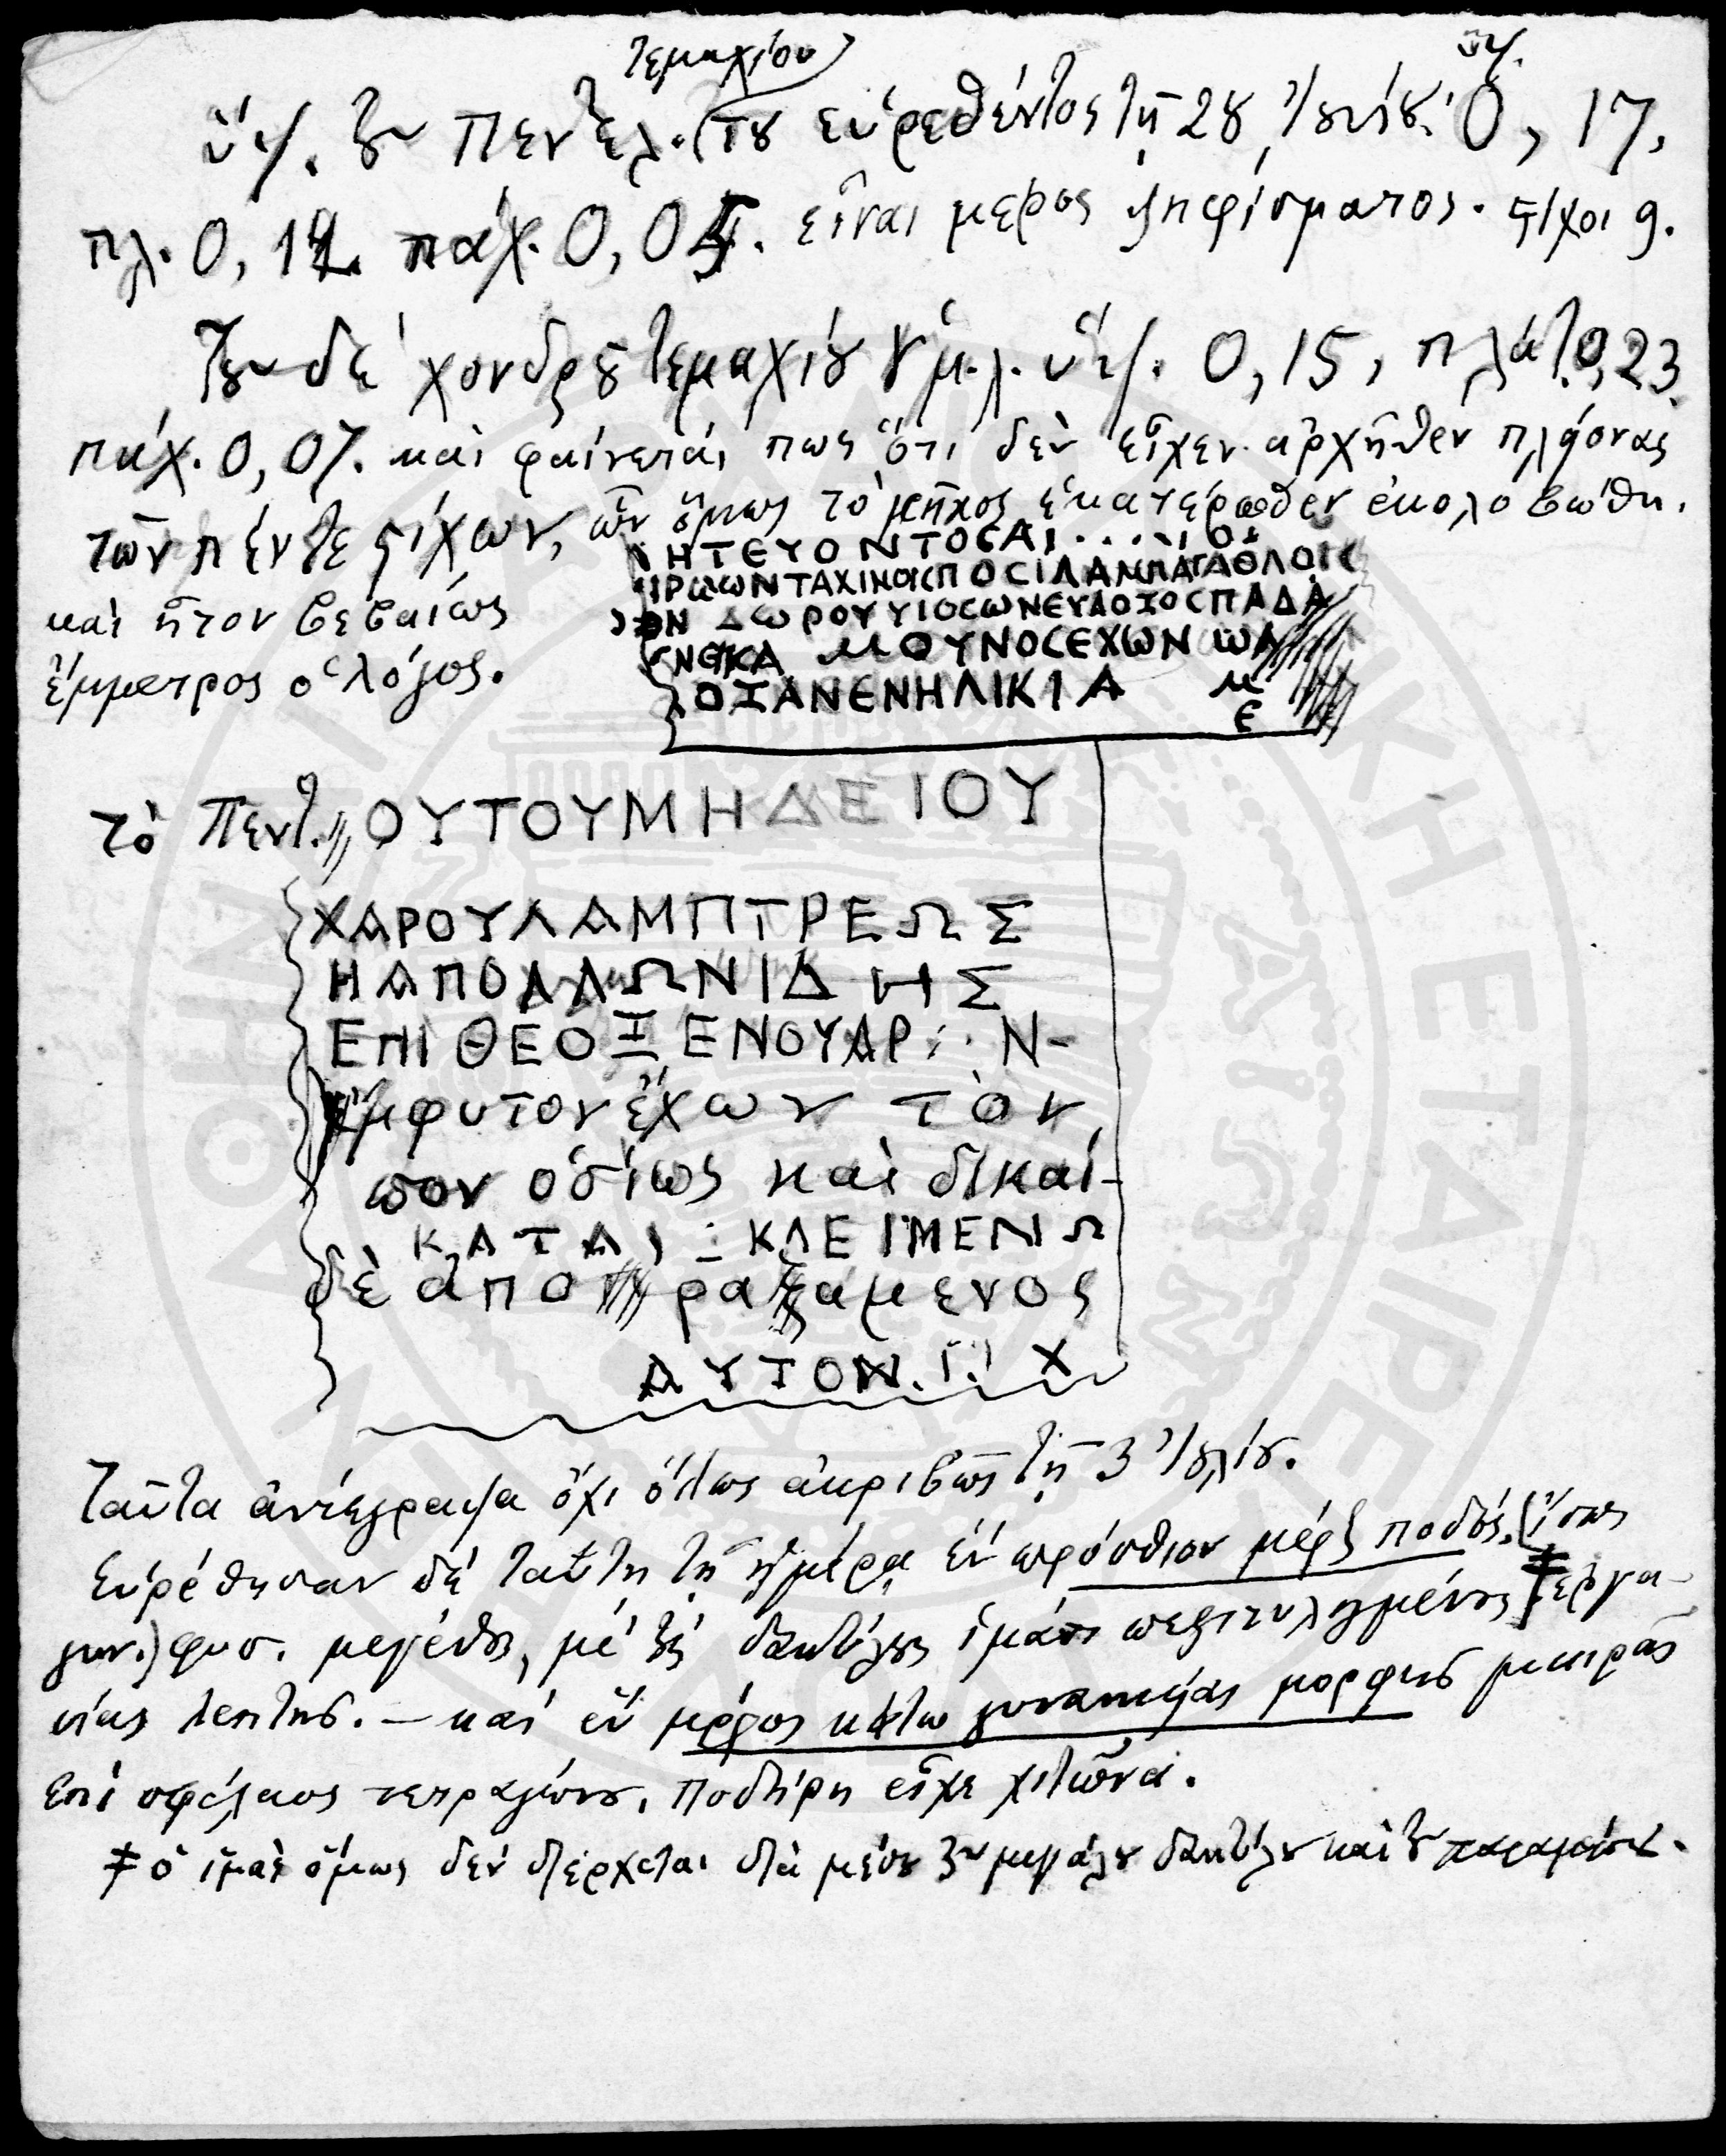 τεμαχίου
ὕψ. τοῦ Πεντελ. (τοῦ εὑρεθέντος τῇ 28 Ἰουνίου. 0, 17,
πλ. 0, 12. πάχ. 0, 05. εἶναι μέρος ψηφίσματος. στίχοι 9.
Τοῦ δὲ χονδροῦ τεμαχίου Ὑμ. λ. ὕψ. 0, 15, πλάτ. 0,23.
πάχ. 0, 07. καὶ φαίνεται πως ὅτι δὲν εἶχεν ἀρχῆθεν πλήονας
τῶν πέντε στίχων, ὧν ὅμως τὸ μῆκος ἑκατέρωθεν ἐκολοβώθη.
καὶ ἦτον βεβαίως
ἔμμετρος ὁ λόγος.
ΗΤΕΥΟΝΤΟϹΑΙ
ΔΩΡΟΥΥΙΟϹΩΝΕΥΔΟΞΟϹΠΑΔΑ
ΝΕΚΑ ΜΟΥΝΟϹΕΧΩΝ ΩΛ
ΟΞΑΝΕΝΗΛΙΚΙΑ Μ
Ε
τὸ Πεντ. ΟΥΤΟΥΜΗΔΕΙΟΥ
ΧΑΡΟΥΛΑΜΠΤΡΕΩΣ
ΗΑΠΟΛΛΩΝΙΔΗΣ
ΕΠΙΘΕΟΞΕΝΟΥΑΡ . . Ν-
ἔμφυτον ἔχων τὸν
πον ὁσίως καὶ δικαί-
ΚΑΤΑ ΚΛΕΙΜΕΝΩ
δὲ ἀπο ραξάμενος
ΑΥΤΟΝ. Γ. Χ
Ταῦτα ἀντέγραψα ὄχι ὅλως ἀκριβῶς τῇ 3 Ἰουλίου.
Εὑρέθησαν δὲ ταύτῃ τῇ ἡμέρᾳ ἓν πρόσθιον μέρος ποδός, (ἴσως
γυν.) φυσ. μεγέθους, μὲ τοὺς δακτύλους ἱμάντι περιτυλιγμένους ‡ ἐργα-
σίας λεπτῆς. — καὶ ἓν μέρος κάτω γυναικείας μορφῆς μικρᾶς
ἐπὶ σφέλαος τετραγώνου. ποδήρη εἶχε χιτῶνα.
‡ ὁ ἱμὰς ὅμως δὲν διέρχεται διὰ μέσου τοῦ μεγάλου δακτύλου καὶ τοῦ παραμέσου.